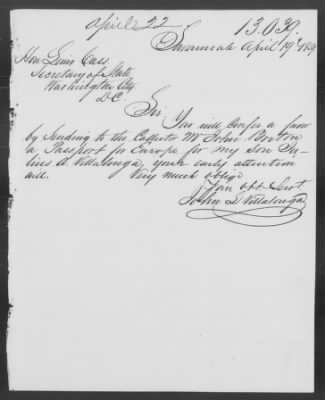 April 22
13.039
Savannah April 19th 1859
Hon Lewis Cass
Secretary of State
Washington City
D.C.
Sir
You will confer a favor
by sending to the Collector Mr John Boston
a Passport for Europe, for my son Ju-
lius A Villalonga, your early attention
will. Very much oblige
Your obt Servt
John L Villalonga